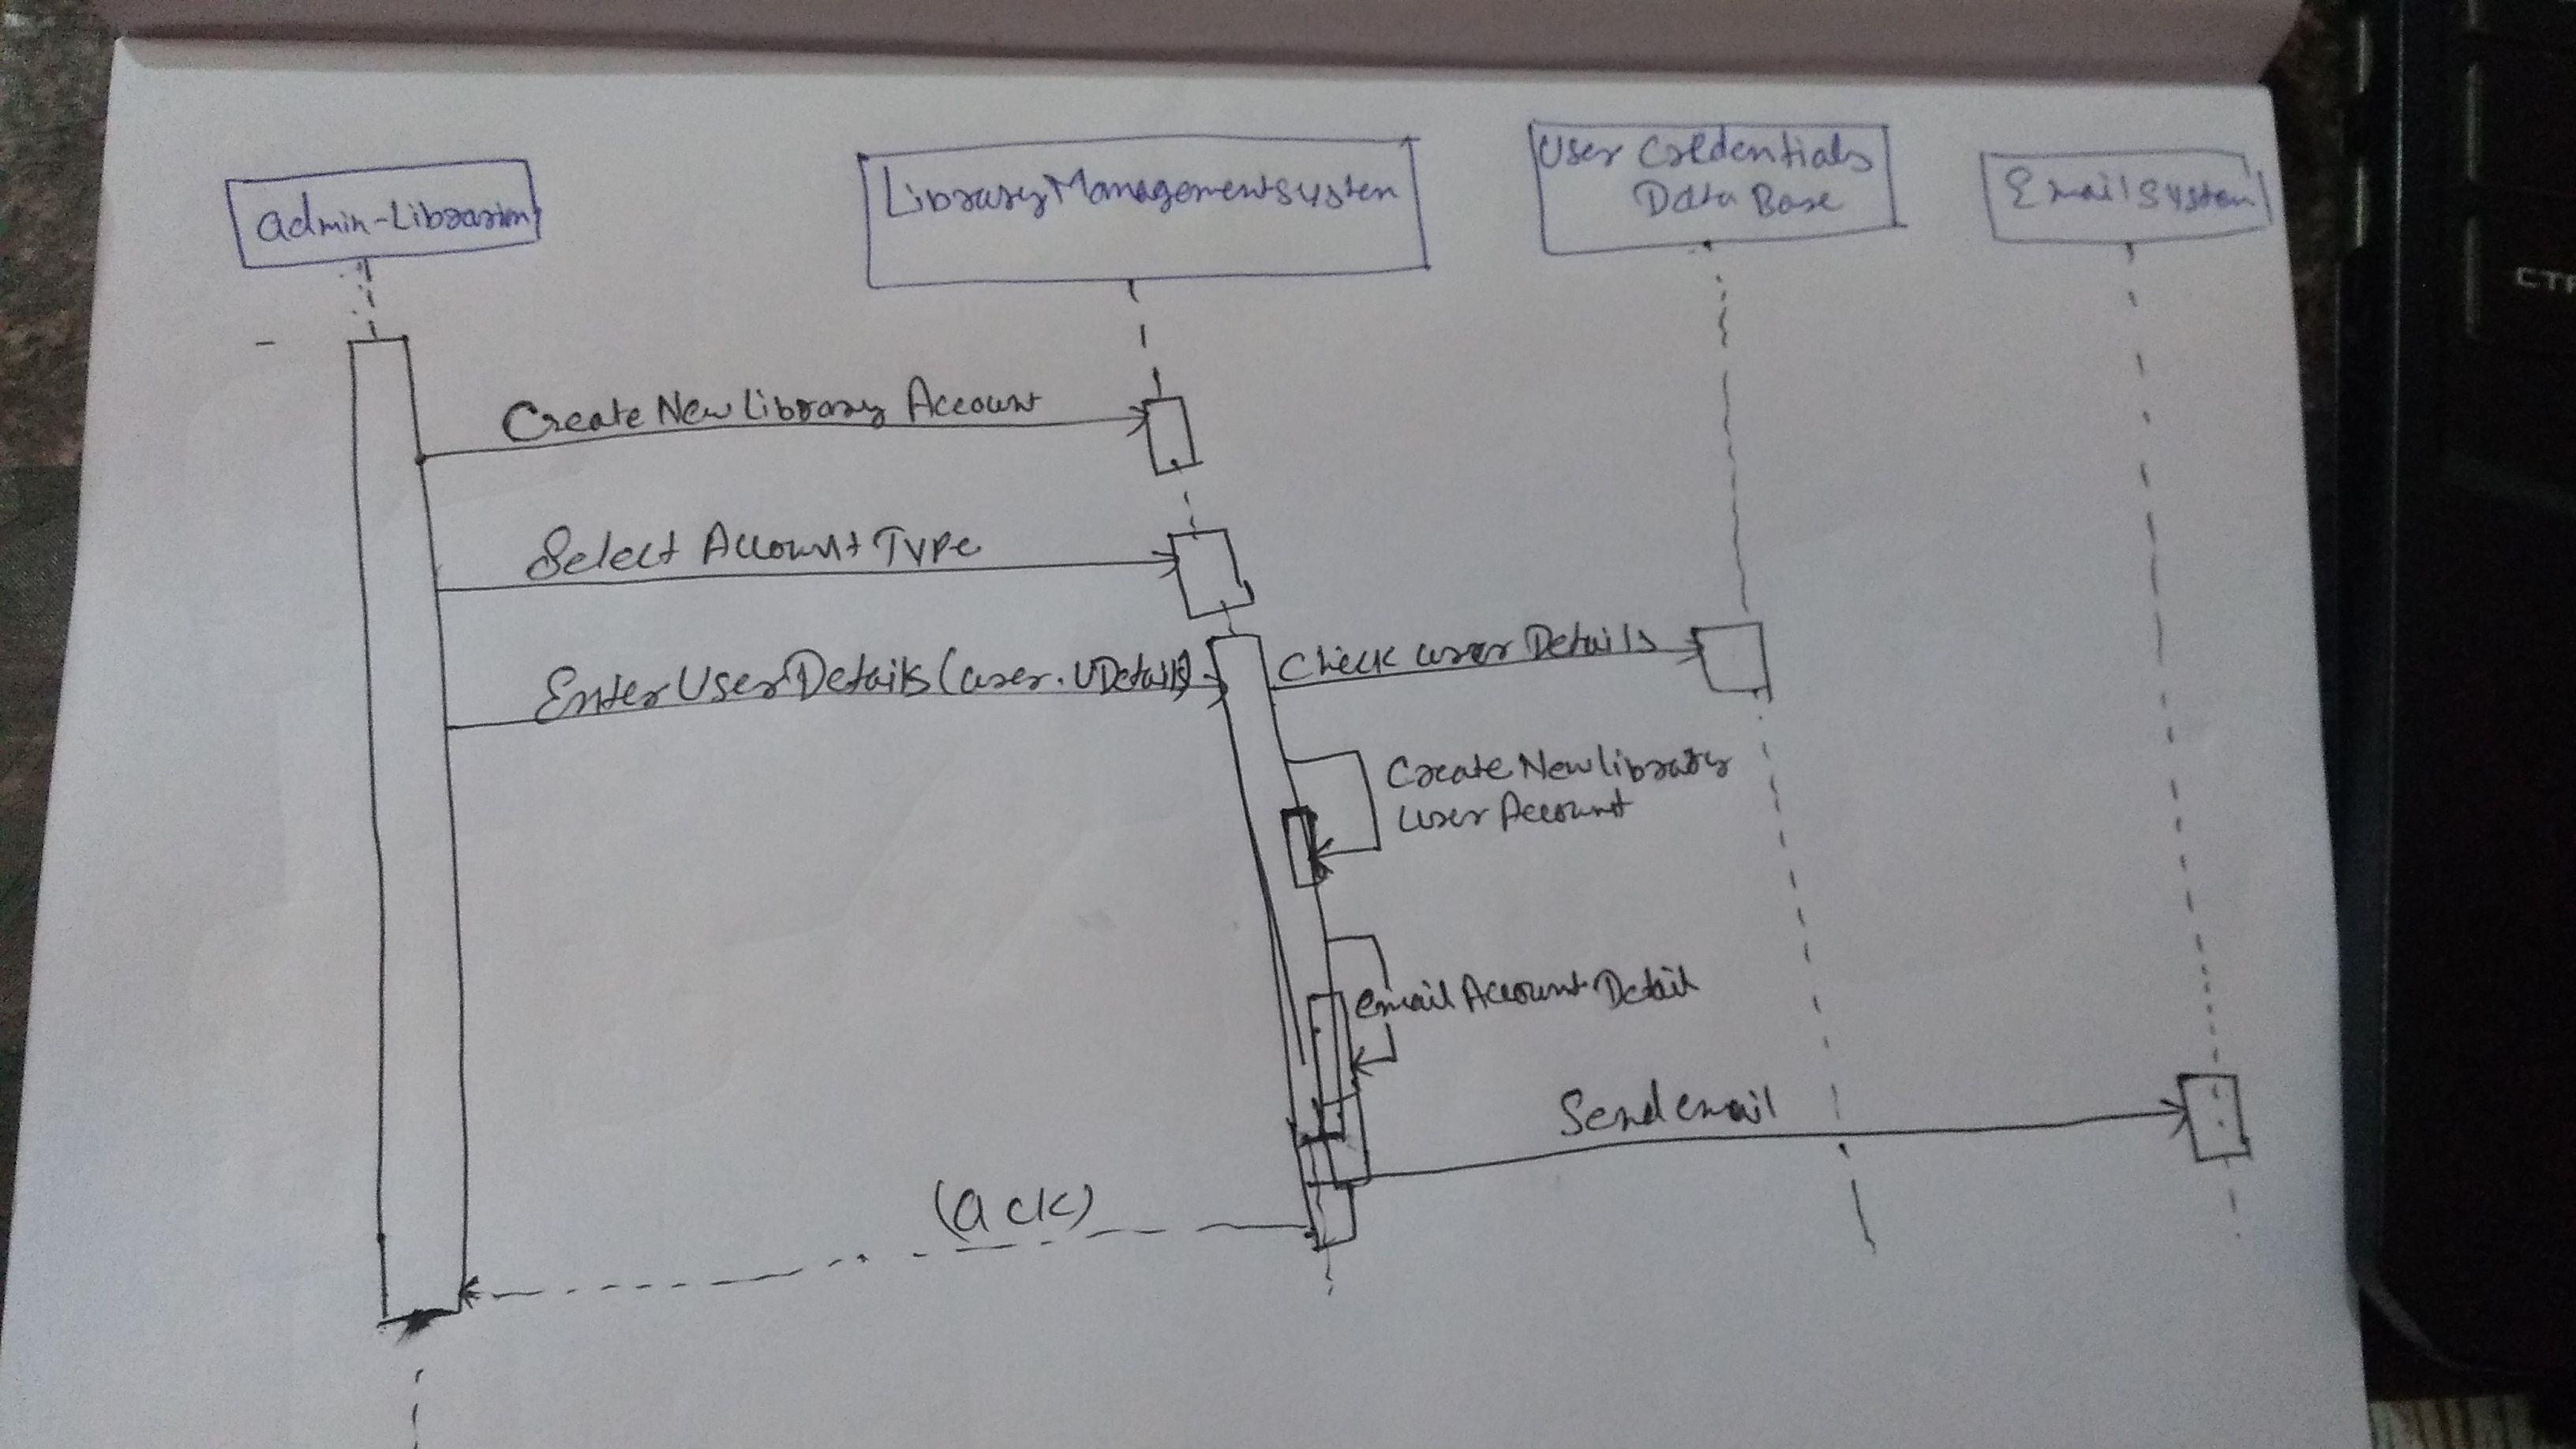 admin-Librarian
LibraryManagementsystem
User Credentials
Data Base
EmailSystem
CT
Create New Library Account
Select Account Type
Enter User Details (user.UDetails)
Check user Details
Create New library
user Account
email Account Detail
Send email
(ack)